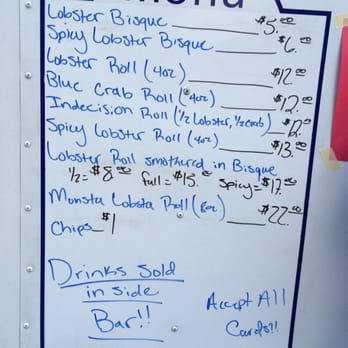 Menu
Lobster Bisque $5.00
Spicy Lobster Bisque $6.00
Lobster Roll (4oz) $12.00
Blue Crab Roll (4oz) $12.00
Indecision Roll (1/2 Lobster, 1/2 crab) $12.00
Spicy Lobster Roll (4oz) $13.00
Lobster Roll smothered in Bisque
1/2=$8.00 full=$15.00 Spicy=$17.00
Monsta Lobsta Roll (8oz) $22.00
Chips $1
Drinks Sold
in side
Bar!!
Accept All
Cards!!